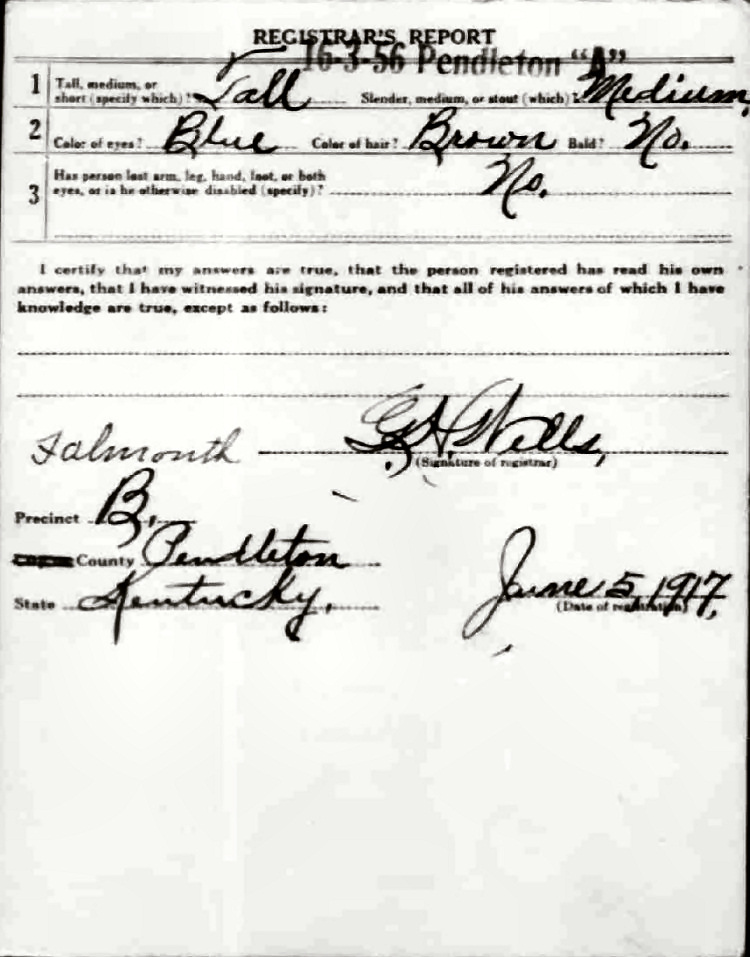 REGISTRAR'S REPORT
16-3-56 Pendleton "A"
1 Tall, medium, or short (specify which)? Tall Slender, medium, or stout (which)? Medium,
2 Color of eyes? Blue Color of hair? Brown Bald? No.
3 Has person lost arm, leg, hand, foot, or both
eyes, or is he otherwise disabled (specify)? No.
I certify that my answers are true, that the person registered has read his own
answers, that I have witnessed his signature, and that all of his answers of which I have
knowledge are true, except as follows:
Falmouth
Wells,
(Signature of registrar)
Precinct B,
County Pendleton
State Kentucky,
June 5, 1917,
(Date of registration)